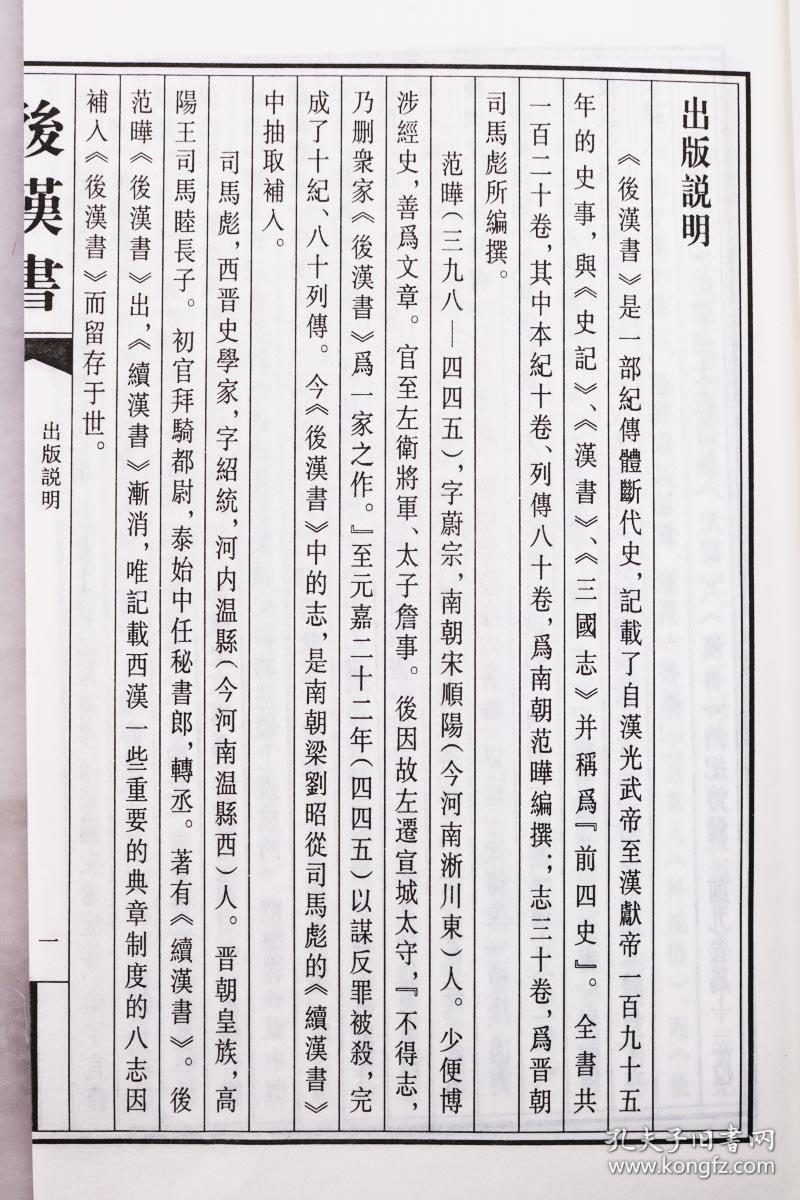 出版説明
《後漢書》是一部紀傳體斷代史，記載了自漢光武帝至漢獻帝一百九十五
年的史事，與《史記》、《漢書》、《三國志》并稱爲『前四史』。全書共
一百二十卷，其中本紀十卷、列傳八十卷，爲南朝范曄編撰；志三十卷，爲晋朝
司馬彪所編撰。
范曄（三九八—四四五），字蔚宗，南朝宋順陽（今河南淅川東）人。少便博
涉經史，善爲文章。官至左衛將軍、太子詹事。後因故左遷宣城太守，『不得志，
乃删衆家《後漢書》爲一家之作。』至元嘉二十二年（四四五）以謀反罪被殺，完
成了十紀、八十列傳。今《後漢書》中的志，是南朝梁劉昭從司馬彪的《續漢書》
中抽取補入。
司馬彪，西晋史學家，字紹統，河内温縣（今河南温縣西）人。晋朝皇族，高
陽王司馬睦長子。初官拜騎都尉，泰始中任秘書郎，轉丞。著有《續漢書》。後
范曄《後漢書》出，《續漢書》漸消，唯記載西漢一些重要的典章制度的八志因
補入《後漢書》而留存于世。
後漢書
出版説明
一
孔夫子旧书网
www.kongfz.com